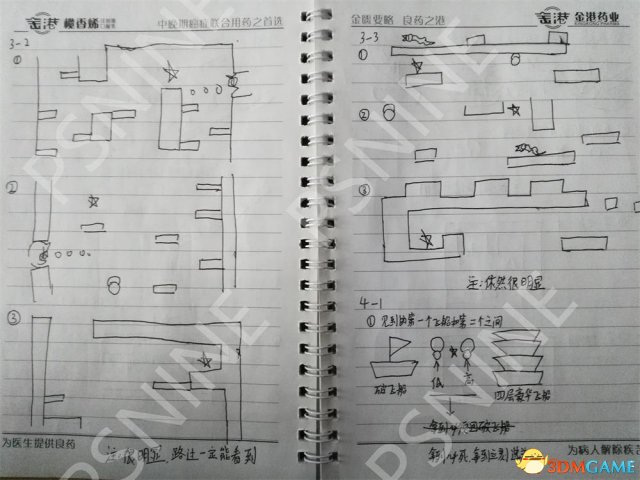 金港 榄香烯
中晚期癌症联合用药之首选
3-2
①
②
③
为医生提供良药
注:很明显,路过一定能看到
金匮要略 良药之港
金港药业
3-3
①
②
③
注:依然很明显
4-1
① 见到的第一个飞船和第二个之间
破飞船
低
高
四层豪华飞船
为病人解除疾
PSNINE
PSNINE
PSNINE
PSNINE
PSNINE
3DMGAME